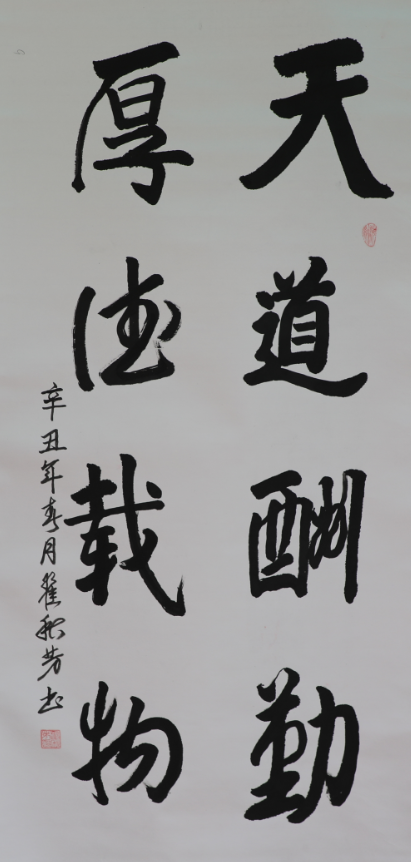 天道酬勤
厚德载物
辛丑年春月翟秋芳书